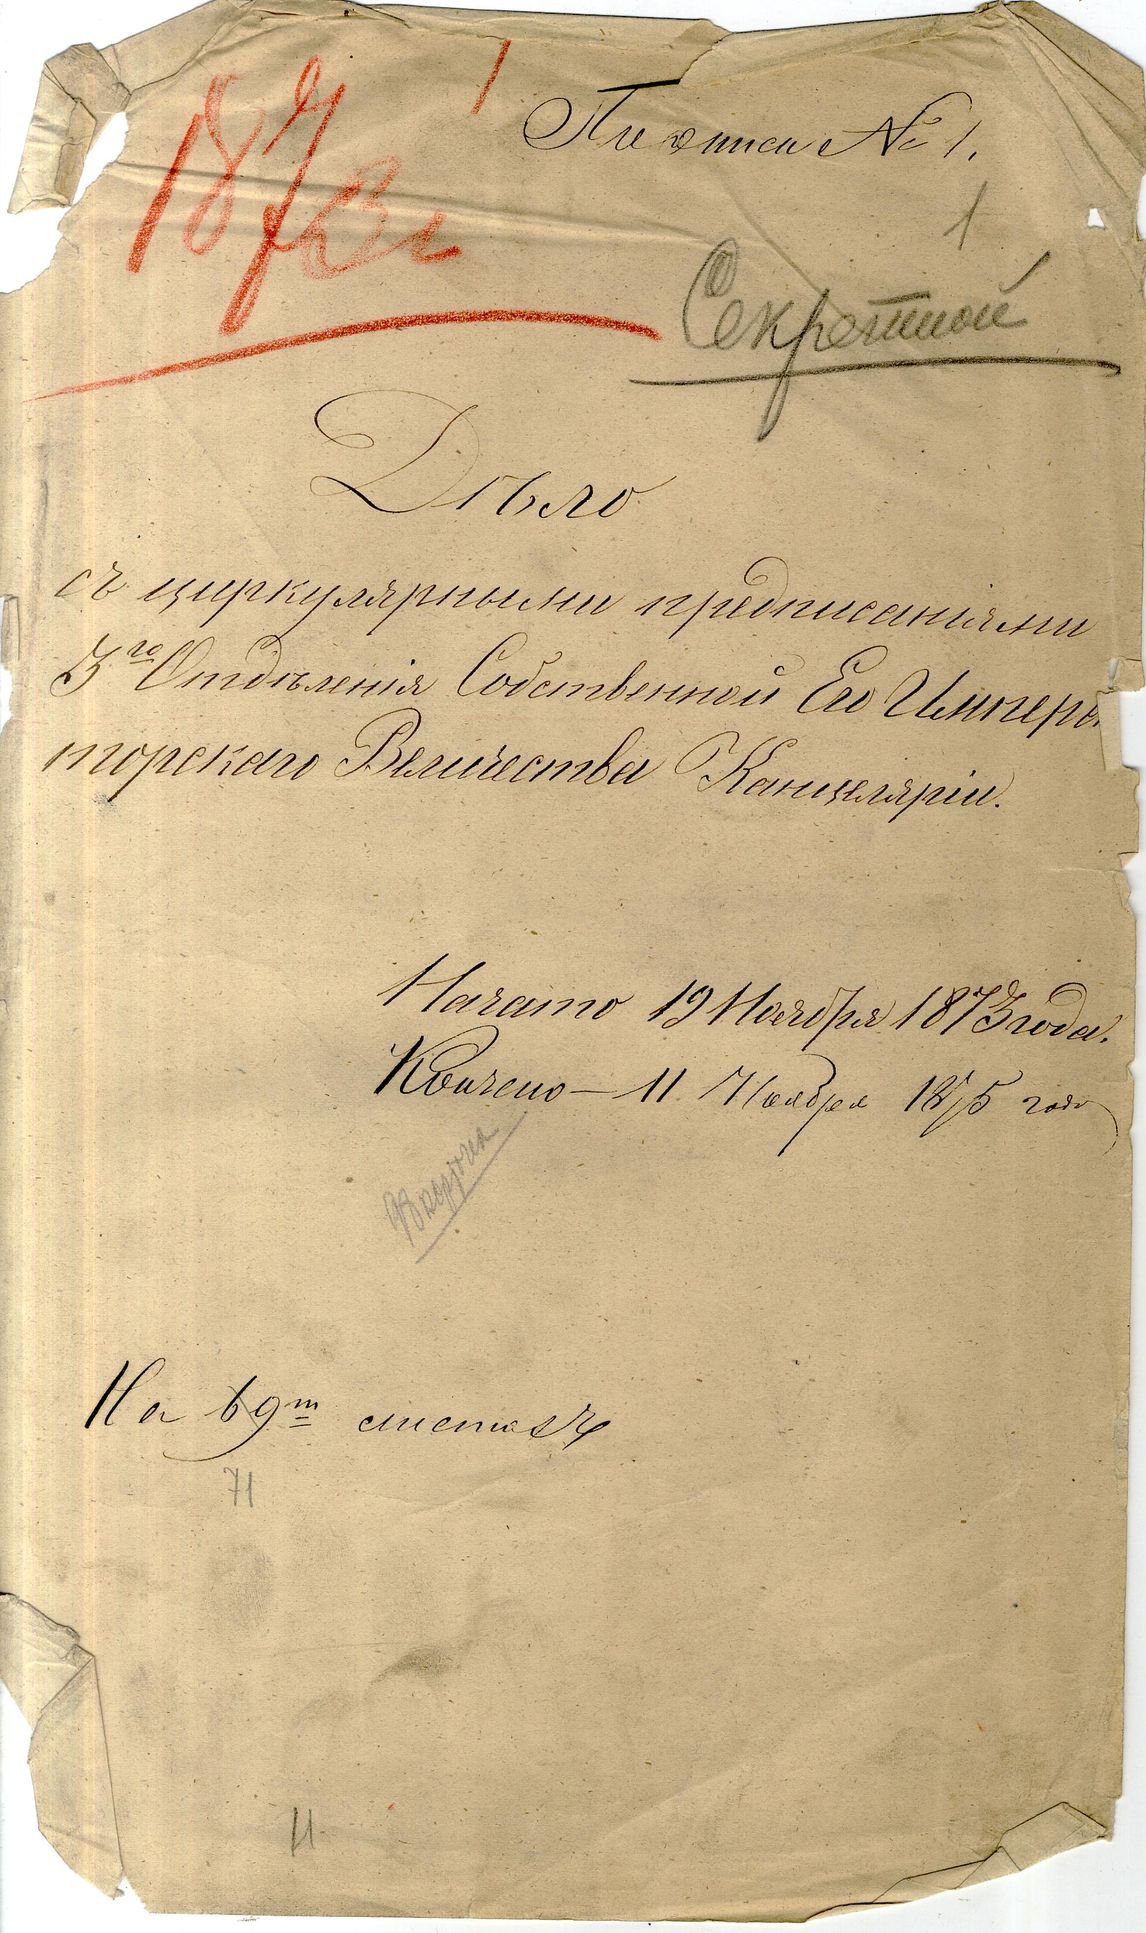 1
1873 г
По описи № 1.
1
Секретной
Дѣло
съ циркулярными предписаніями
3го Отдѣленія Собственной Его Импера
торскаго Величества Канцеляріи.
Начато 19 Ноября 1873 года.
Кончено — 11 Ноября 1875 года
На 69т листахъ
71